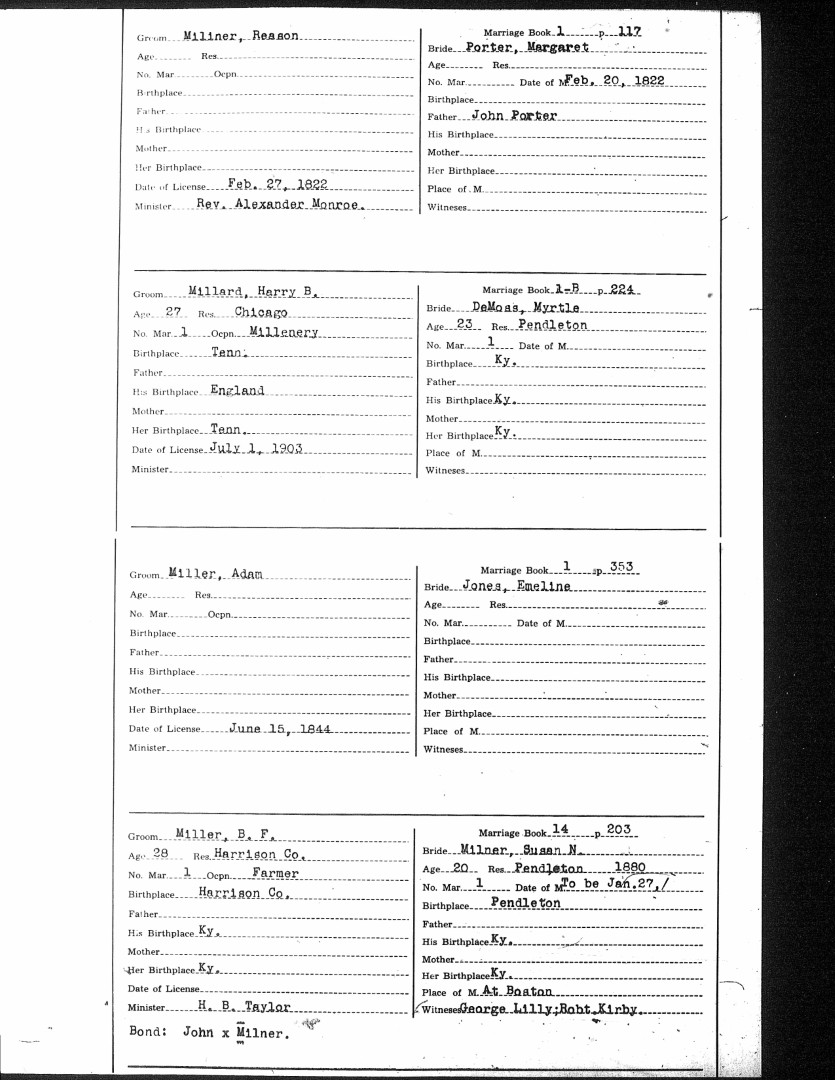 Groom Millner, Reason
Age Res.
No. Mar. Ocpn.
Birthplace
Father
His Birthplace
Mother
Her Birthplace
Date of License Feb. 27, 1822
Minister Rev. Alexander Monroe.
Marriage Book 1 p. 117
Bride Porter, Margaret
Age Res.
No. Mar. Date of M. Feb. 20, 1822
Birthplace
Father John Porter
His Birthplace
Mother
Her Birthplace
Place of M.
Witneses
Groom Millard, Harry B.
Age 27 Res. Chicago
No. Mar. 1 Ocpn. Millenery
Birthplace Tenn.
Father
His Birthplace England
Mother
Her Birthplace Tenn.
Date of License July 1, 1903
Minister
Marriage Book 1-B p. 224
Bride DeMoss, Myrtle
Age 23 Res. Pendleton
No. Mar. 1 Date of M.
Birthplace Ky.
Father
His Birthplace Ky.
Mother
Her Birthplace Ky.
Place of M.
Witneses
Groom Miller, Adam
Age Res.
No. Mar. Ocpn.
Birthplace
Father
His Birthplace
Mother
Her Birthplace
Date of License June 15, 1844
Minister
Marriage Book 1 p. 353
Bride Jones, Emeline
Age Res.
No. Mar. Date of M.
Birthplace
Father
His Birthplace
Mother
Her Birthplace
Place of M.
Witneses
Groom Miller, B. F.
Age 28 Res. Harrison Co.
No. Mar. 1 Ocpn. Farmer
Birthplace Harrison Co.
Father
His Birthplace Ky.
Mother
Her Birthplace Ky.
Date of License
Minister H. B. Taylor
Bond: John x Milner.
Marriage Book 14 p. 203
Bride Milner, Susan N.
Age 20 Res. Pendleton 1880
No. Mar. 1 Date of M. To be Jan.27,/
Birthplace Pendleton
Father
His Birthplace Ky.
Mother
Her Birthplace Ky.
Place of M. At Boston
Witneses George Lilly;Robt.Kirby.